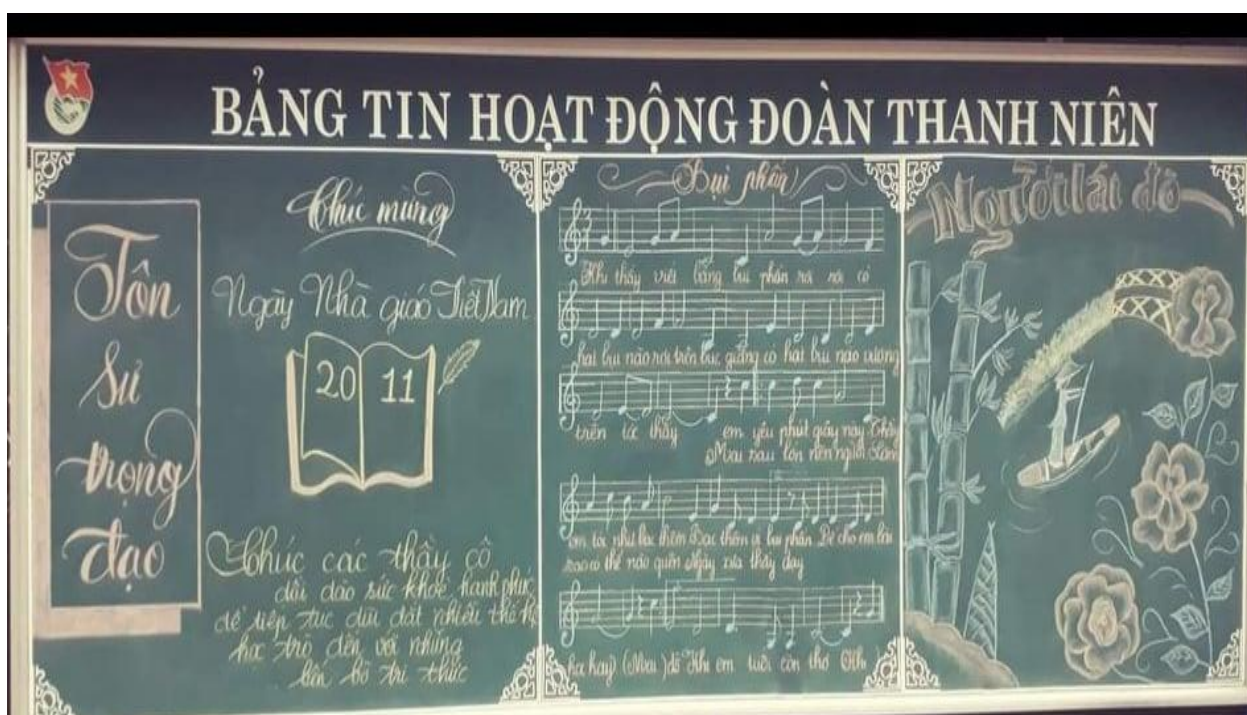 BẢNG TIN HOẠT ĐỘNG ĐOÀN THANH NIÊN
Tôn
sư
trọng
đạo
Chúc mừng
Ngày Nhà giáo Việt Nam
20 11
Chúc các thầy cô
dồi dào sức khoẻ hạnh phúc
để tiếp tục dìu dắt nhiều thế hệ
học trò đến với những
bến bờ tri thức
Bụi phấn
Khi thầy viết bảng bụi phấn rơi rơi có
hạt bụi nào rơi trên bục giảng có hạt bụi nào vương
trên tóc thầy em yêu phút giây này Thầy
Mai sau lớn nên người Làm
em tóc như bạc thêm Bạc thêm vì bụi phấn Để cho em bài
sao có thể nào quên Ngày xưa thầy dạy
học hay (Mai) dỗ Khi em tuổi còn thơ
Người lái đò